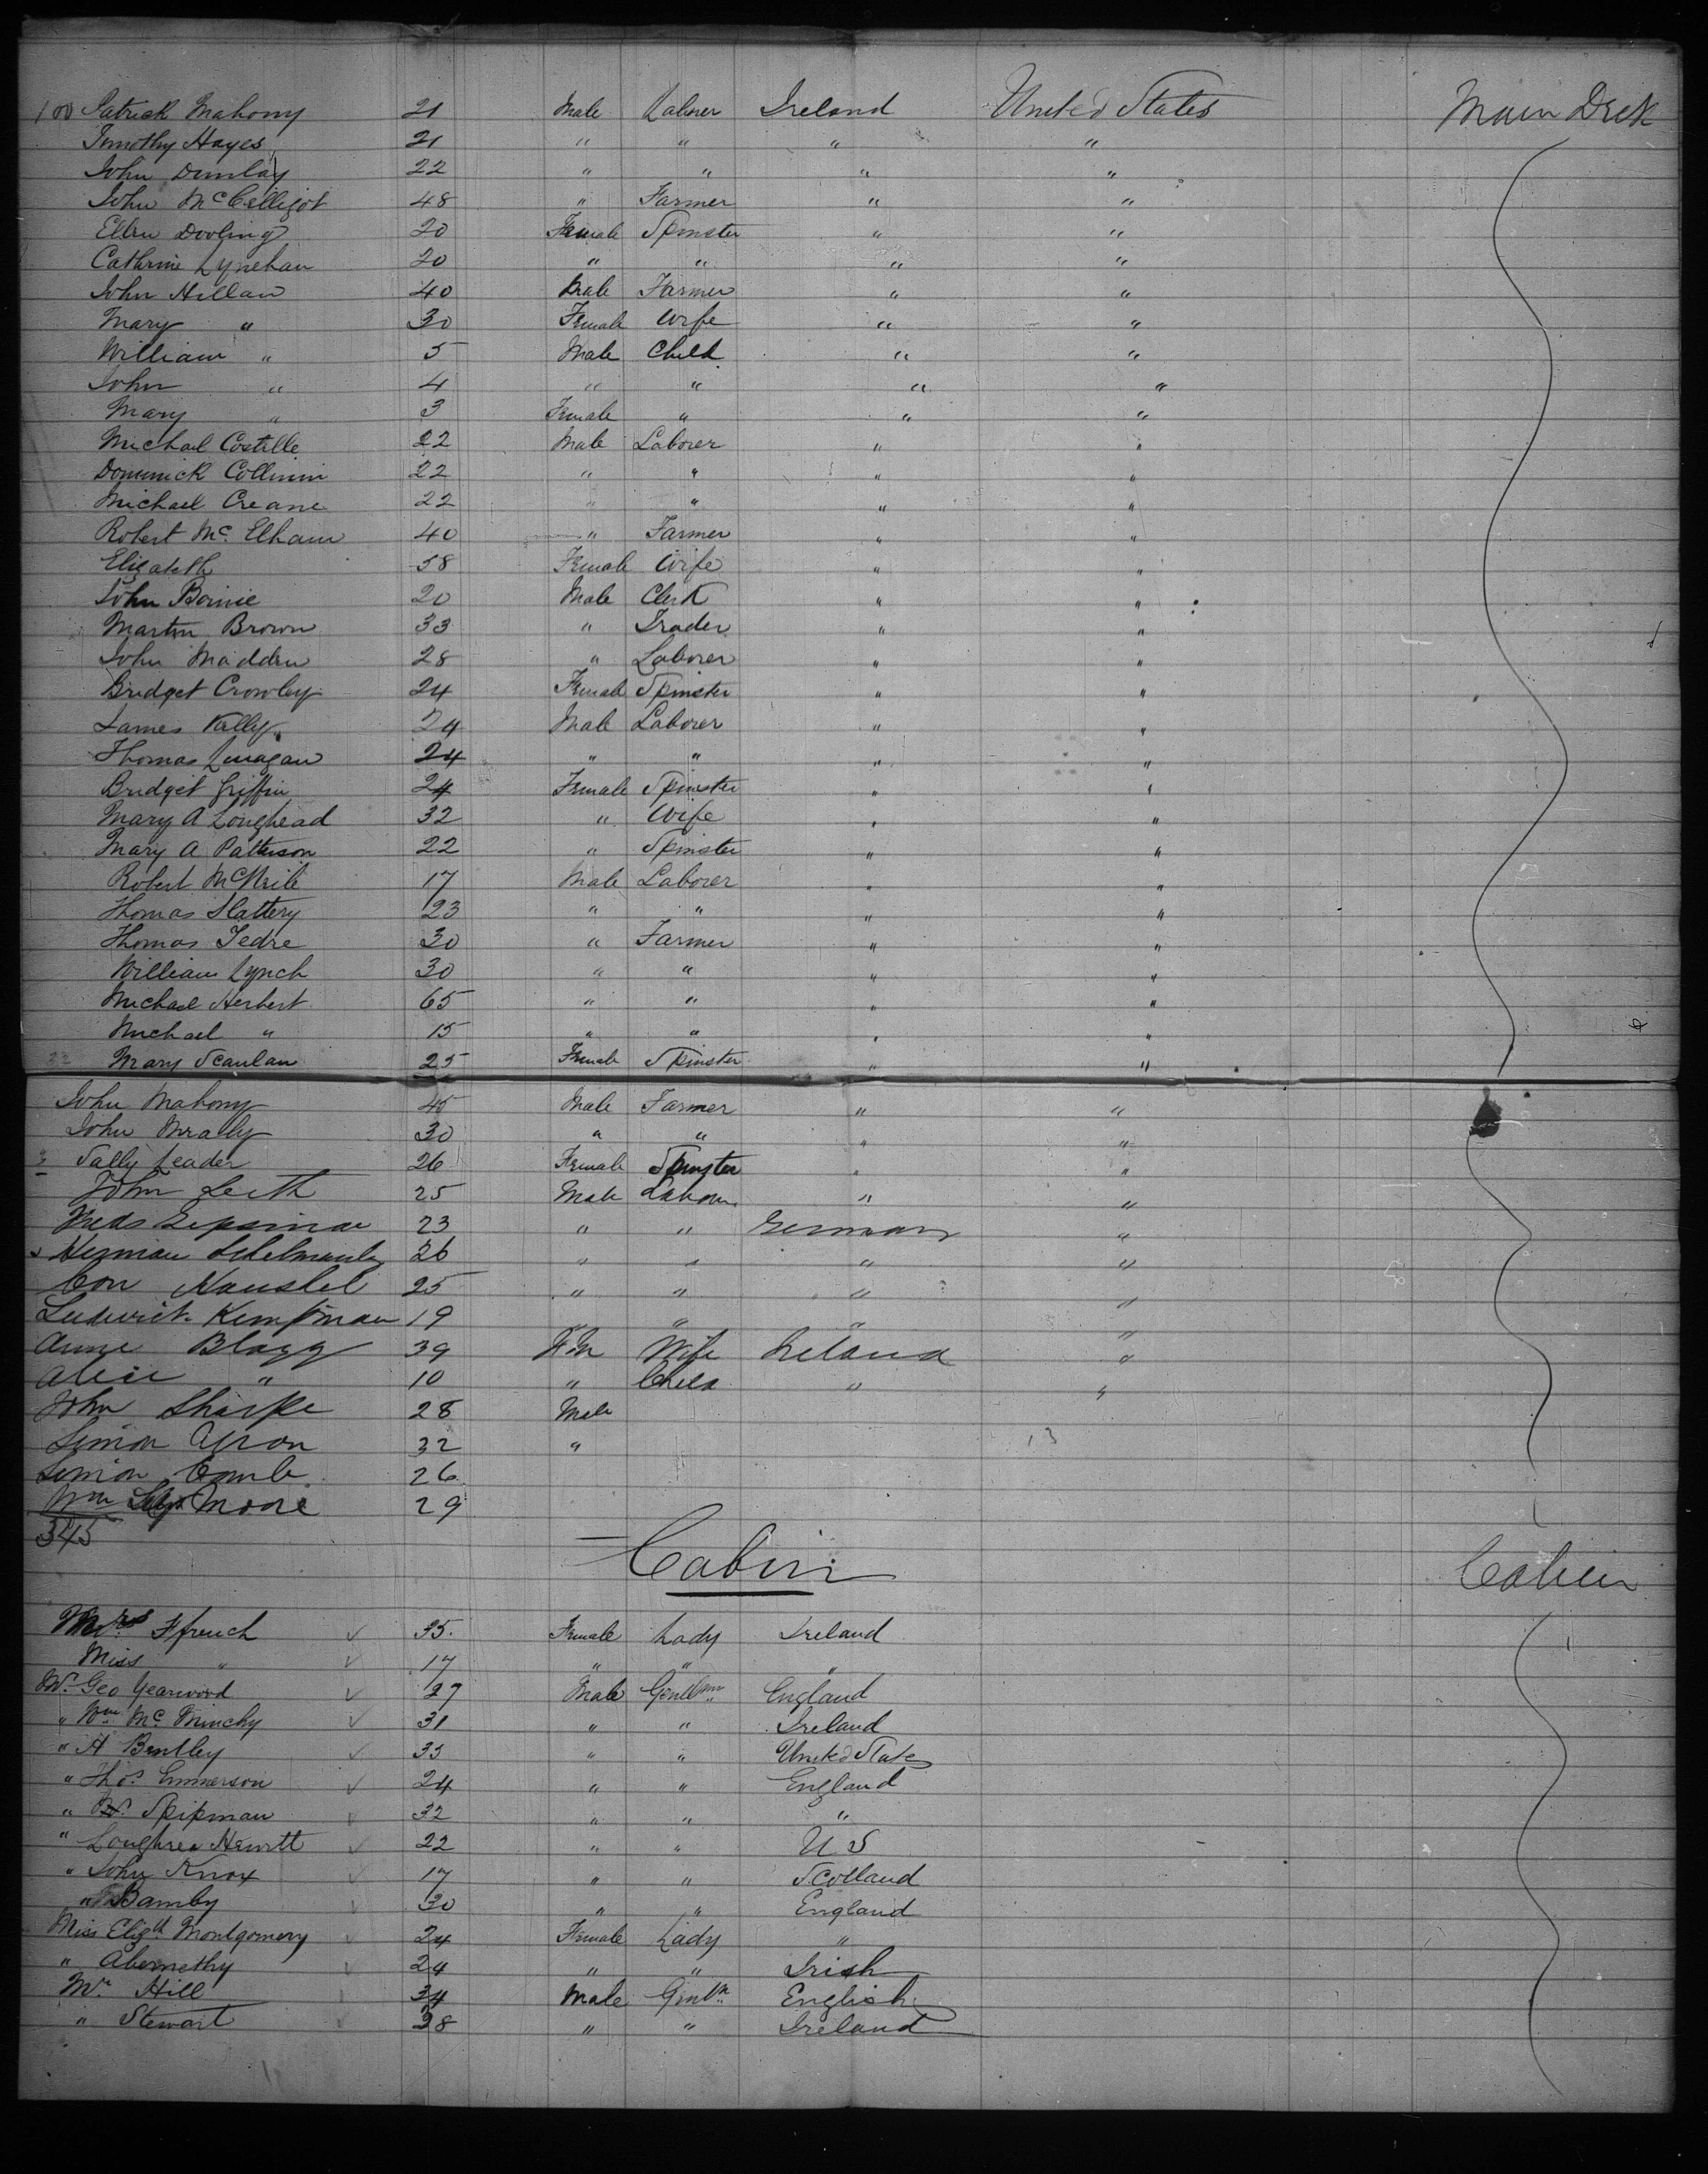 100 Patrick Mahony 21 Male Laborer Ireland United States Main Deck
Timothy Hayes 21 " " " "
John Dunlay 22 " " " "
John McCelligot 48 " Farmer " "
Ellen Dooling 20 Female Spinster " "
Cathrine Lynehan 20 " " " "
John Hillan 40 Male Farmer " "
Mary " 30 Female Wife " "
William " 5 Male Child " "
John " 4 " " " "
Mary " 3 Female " " "
Michael Costille 22 Male Laborer " "
Dominick 22 " " " "
Michael Creane 22 " " " "
Robert Mc. Elham 40 " Farmer " "
Elizabeth 38 Female Wife " "
John 20 Male Clerk " "
Martin Brown 33 " Trader " "
John Madden 28 " Laborer " "
Bridget Crowley 24 Female Spinster " "
James Kelly 24 Male Laborer " "
Thomas 24 " " " "
Bridget Griffin 24 Female Spinster " "
Mary A Loughead 32 " Wife " "
Mary A Patterson 22 " Spinster " "
Robert McNeile 17 Male Laborer " "
Thomas Slattery 23 " " " "
Thomas Tedre 30 " Farmer " "
William Lynch 30 " " " "
Michael Herbert 65 " " " "
Michael " 15 " " " "
Mary Scanlan 25 Female Spinster " "
John Mahony 45 Male Farmer " "
John 30 " " " "
Sally Leader 26 Female Spinster " "
John Leith 25 Male Labour " "
23 " " German "
Herman 26 " " " "
Con 25 " " " "
Kempman 19 " " " "
Anne Blagg 39 Fem Wife Ireland "
Alice " 10 " Child " "
John Sharpe 28 Male
Simon 32 "
Simon 26
Wm Moore 29
345
Cabin Cabin
Mrs. Ffrench 35. Female Lady Ireland
Miss " 17 " " "
Mr. Geo Yearwood 27 Male Gentlmn England
" Wm Mc. 31 " " Ireland
" A Bentley 33 " " United States
" Thos. Emmerson 24 " " England
" Spipman 32 " " "
" Loughrea Hewitt 22 " " U S
" John Knox 17 " " Scotland
" Bamby 30 " " England
Miss Elizth Montgomery 24 Female Lady "
" Abernethy 24 " " Irish
Mr. Hill 34 Male Gentn English
" Stewart 38 " " Ireland